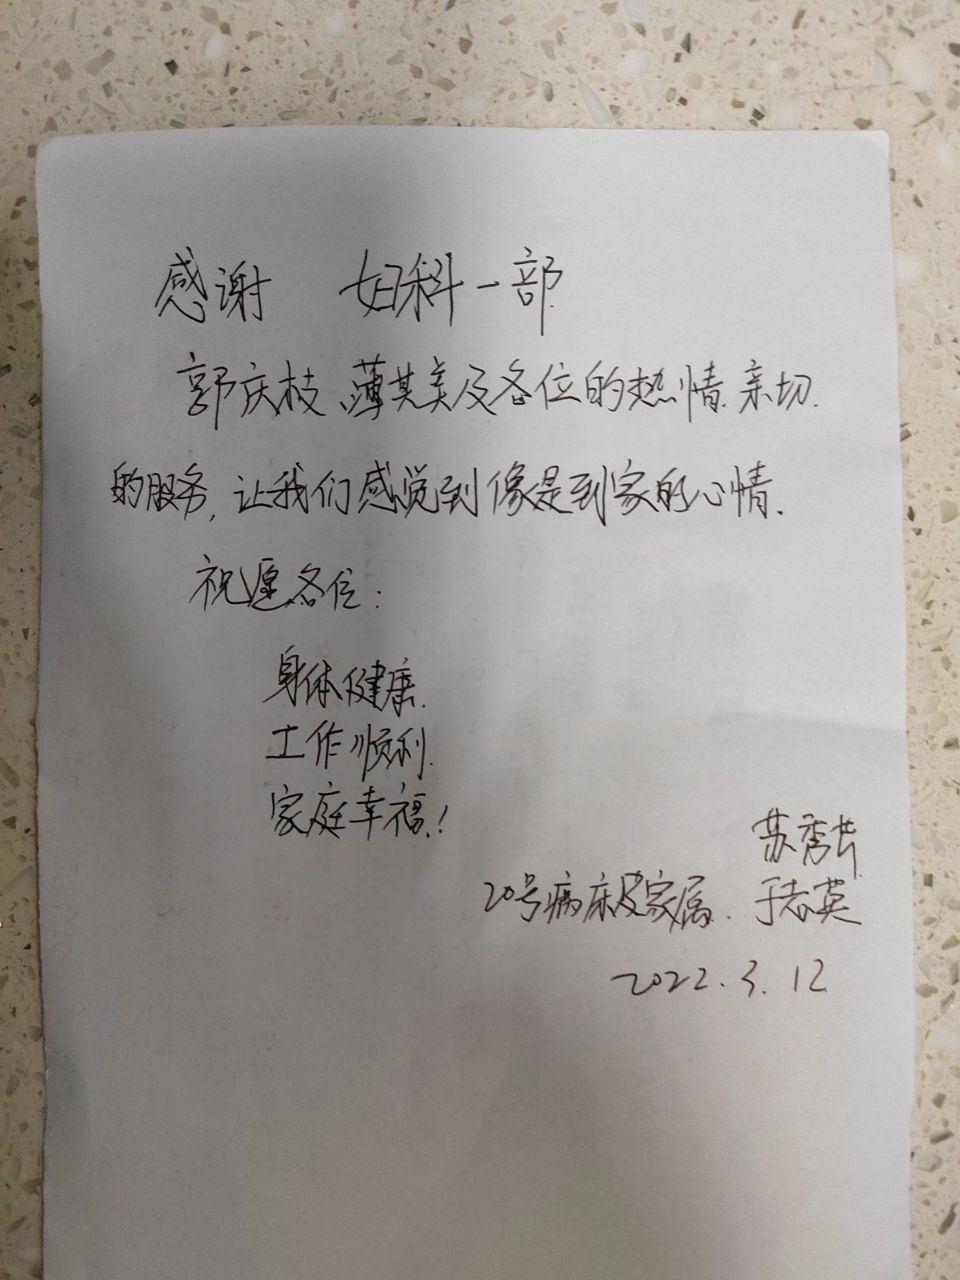 感谢 妇科一部
郭庆枝、薄其美及各位的热情.亲切.
的服务,让我们感觉到像是到家的心情.
祝愿各位:
身体健康.
工作顺利.
家庭幸福!
苏秀
20号病床及家属. 于志英
2022.3.12